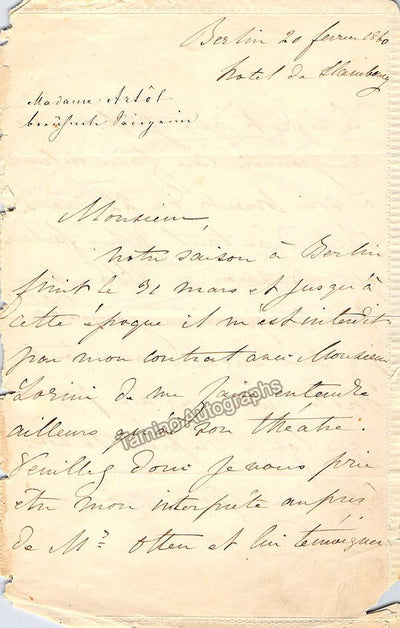 Berlin 20 fevrier 1860
hotel de Hambourg
Madame Artôt
berühmte Sängerin
Monsieur,
Notre saison à Berlin
finit le 31 mars et jusqu'à
cette époque il m'est interdit
par mon contrat avec Monsieur
Lorini de me faire entendre
ailleurs qu'à son théâtre.
Veuillez donc je vous prie
être mon interprète auprès
de Mr Otten et lui témoigner
Tamino Autographs